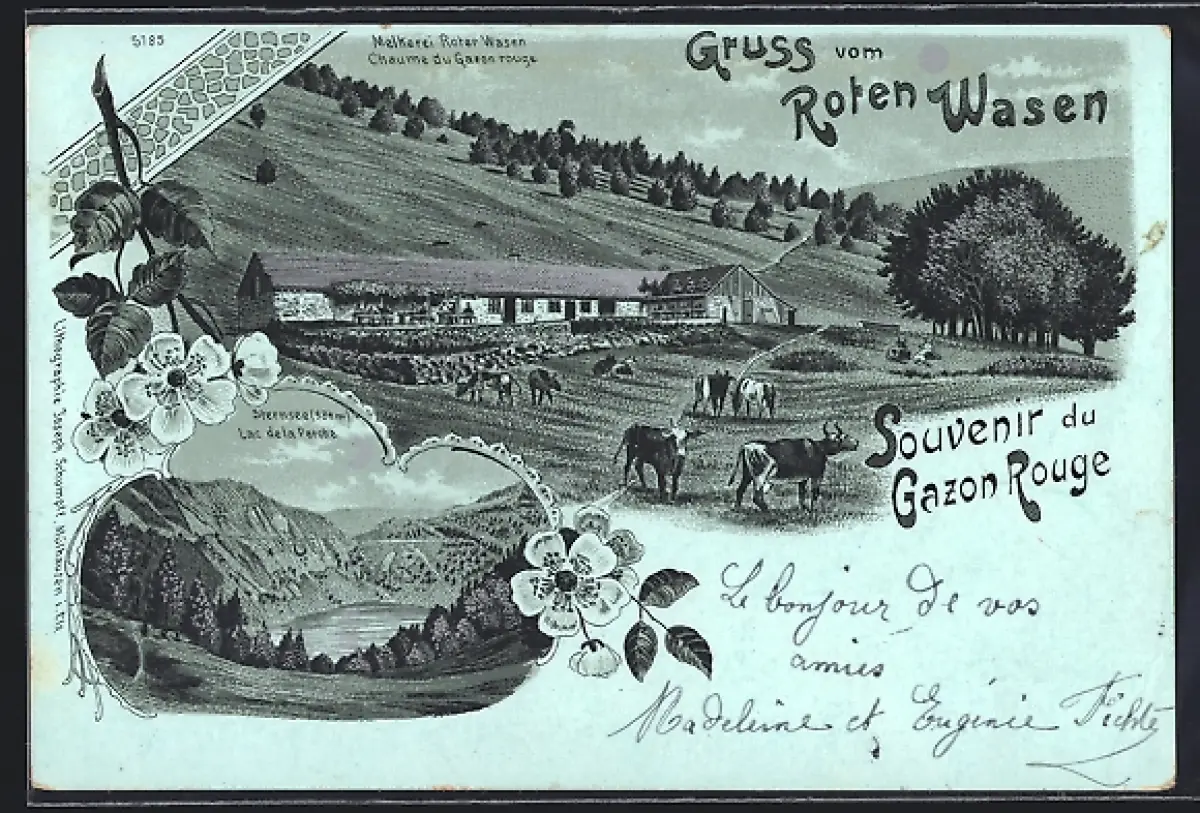 5185
Melkerei Roter Wasen
Chaume du Gazon rouge
Gruss vom
Roten Wasen
Souvenir du
Gazon Rouge
Sternsee
Lac de la Perche
Lithographie Joseph Mülhausen i. Els.
Le bonjour de vos
amies
Madeleine et Eugénie Fichte